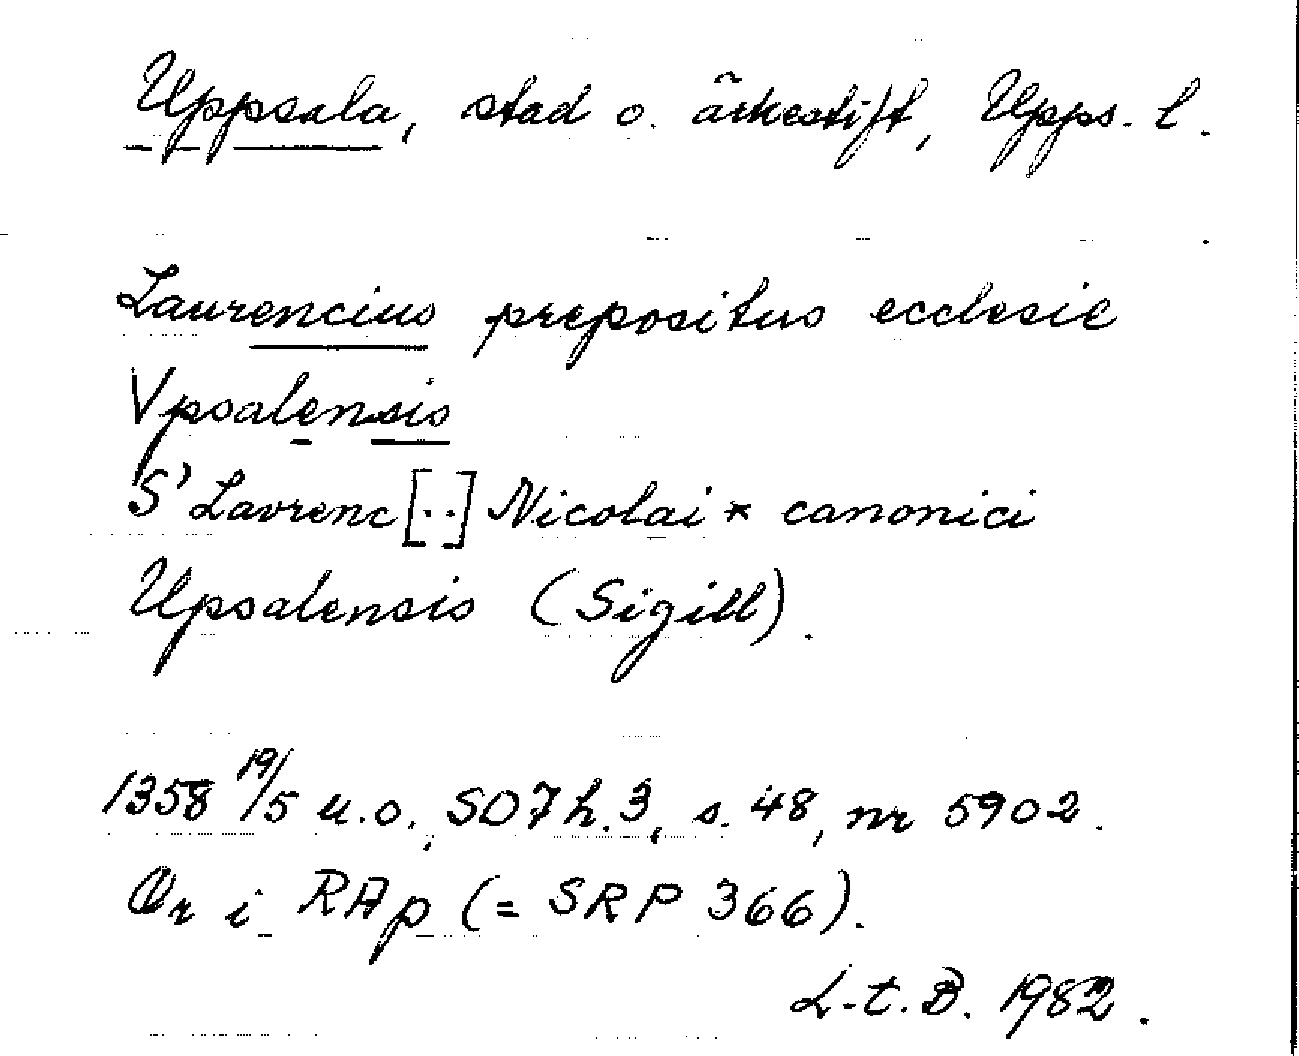 Uppsala, stad o. ärkestift, Upps. l.
Laurencius prepositus ecclesie
Vpsalensis
S' Lavrenc[..] Nicolai * canonici
Upsalensis (Sigill).
1358 19/5 u.o., SD7 h.3, s. 48, nr 5902.
Or i RAp (= SRP 366).
L.t.B. 1982.